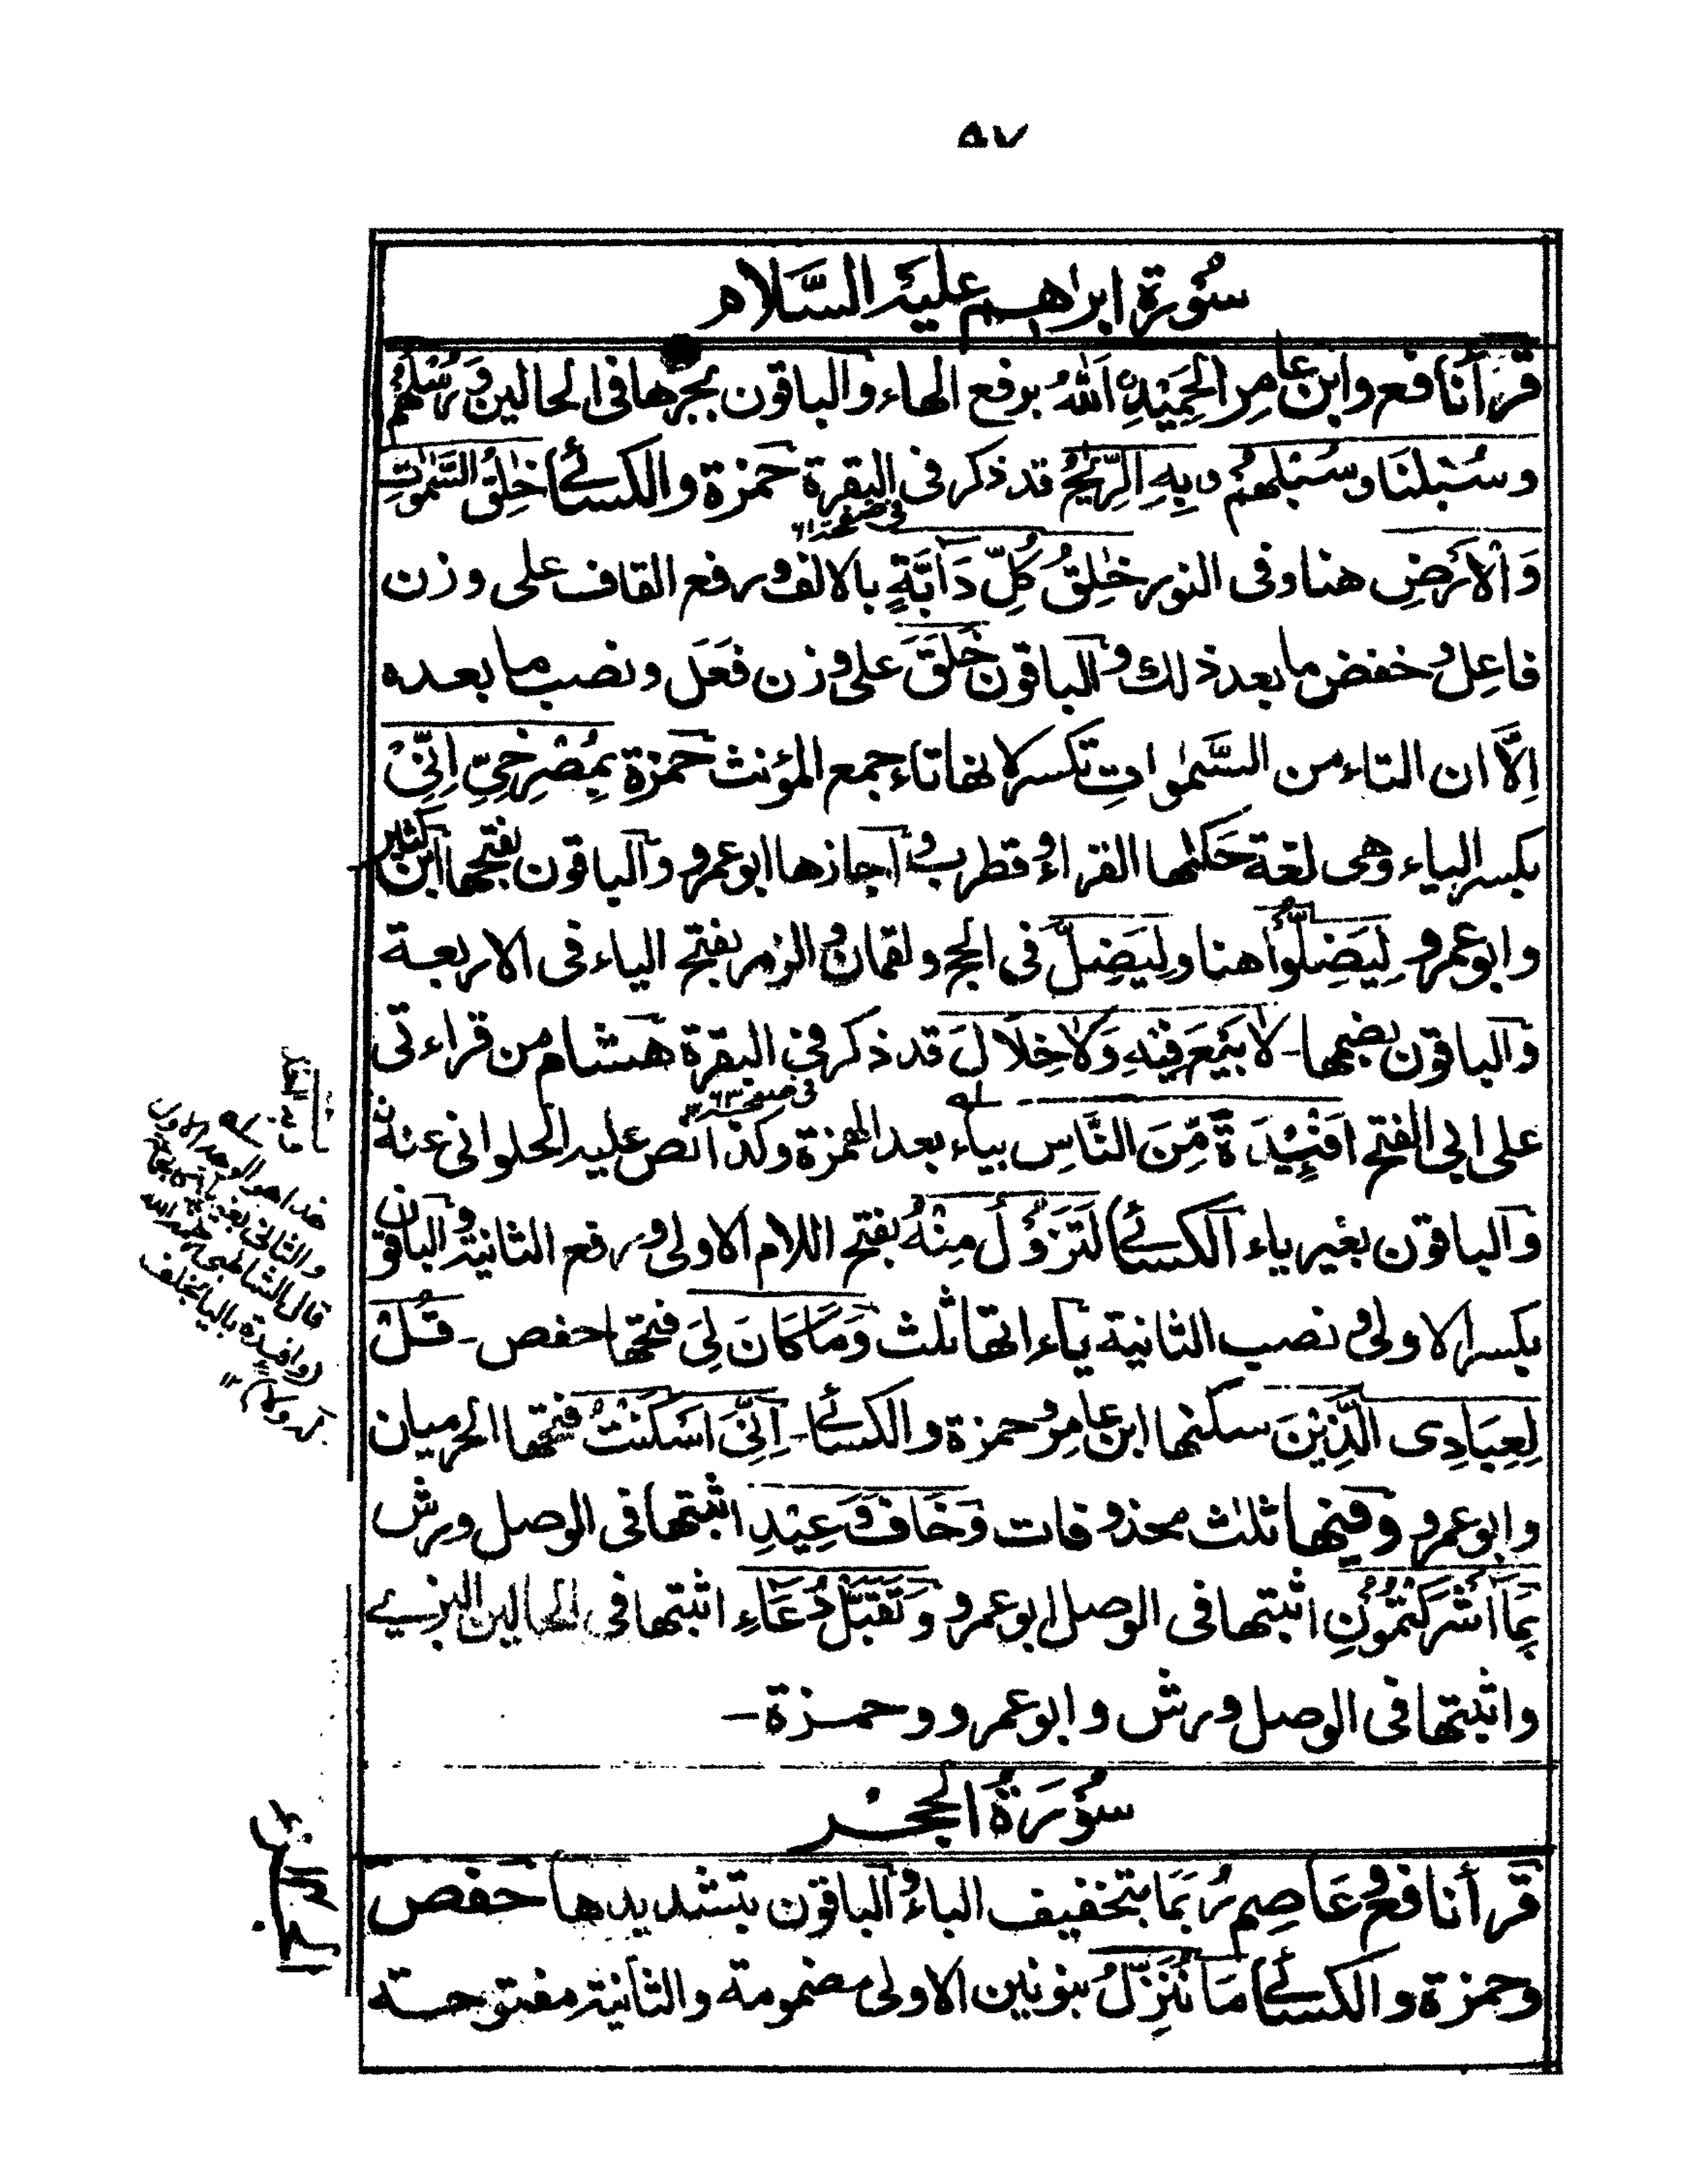 ٥٧
سُورة ابرٰاهيم عليه السَّلام
قرأ نافع وابن عامِر الحَمِيْدِ اَللّٰهُ برفع الهاء والباقون بجرّها فى الحالين وَرُسُلُهُمْ
وسُبُلَنَا وسُبُلَهُمْ وبِهِ الرِّيٰحُ قد ذكر فى البقرة حمزة والكسائى خٰلِقُ السَّمٰوٰتِ
فى صفحه ٦١
وَالْاَرْضِ هنا وفى النور خٰلِقُ كُلِّ دَآبَّةٍ بالالف ورفع القاف على وزن
فاعِل وخفض ما بعد ذلك والباقون خَلَقَ على وزن فَعَل ونصب ما بعده
اِلَّا ان التاء من السَّمٰوات تكسر لانها تاء جمع المؤنث حمزة بِمُصْرِخِيِّ اِنِّيْ
بكسر الياء وهى لغة حكٰها الفراء وقطرب واجازها ابو عمرو والباقون بفتحها ابن كثير
وابو عمرو لِيَضِلُّوْا هنا ولِيَضِلَّ فى الحج ولقمان والزمر بفتح الياء فى الاربعة
والباقون بضمها - لَا بَيْعَ فِيْهِ وَلَا خِلَالَ قد ذكر فى البقرة هشام من قراءتى
فى صفحه ٦٣
على ابى الفتح اَفْئِيْدَةً مِّنَ النَّاسِ بياء بعد الهمزة وكذا نص عليه الحلوانى عنه
والباقون بغير ياء الكسائى لَتَزُوْلُ مِنْهُ بفتح اللام الاولى ورفع الثانية والباقون
بكسر الاولى ونصب الثانية ياء اتها ثلث وَمَا كَانَ لِيَ فتحها حفص - قُلْ
لِعِبَادِى الَّذِيْنَ سكنها ابن عامر وحمزة والكسائى - اِنِّيَ اَسْكَنْتُ فتحها الحرميان
وابو عمرو وفيها ثلٰث محذوفات وَخَافَ وَعِيْدِ اثبتها فى الوصل ورش
بِمَآ اَشْرَكْتُمُوْنِ اثبتها فى الوصل ابو عمرو وَتَقَبَّلْ دُعَاءِ اثبتها فى الحالين البزى
واثبتها فى الوصل ورش وابو عمرو وحمزة -
هذا هو الوجه الاول
والثانى بغير ياء
قال الشاطبى رحمه الله
وافئدة باليا بخلف
سُوْرَةُ الْحِجْر
الجزء ١٤
قرأ نافع وعَاصِم رُبَمَا بتخفيف الباء والباقون بتشديدها حفص
وحمزة والكسائى مَا نُنَزِّلُ بنونين الاولى مضمومة والثانية مفتوحة